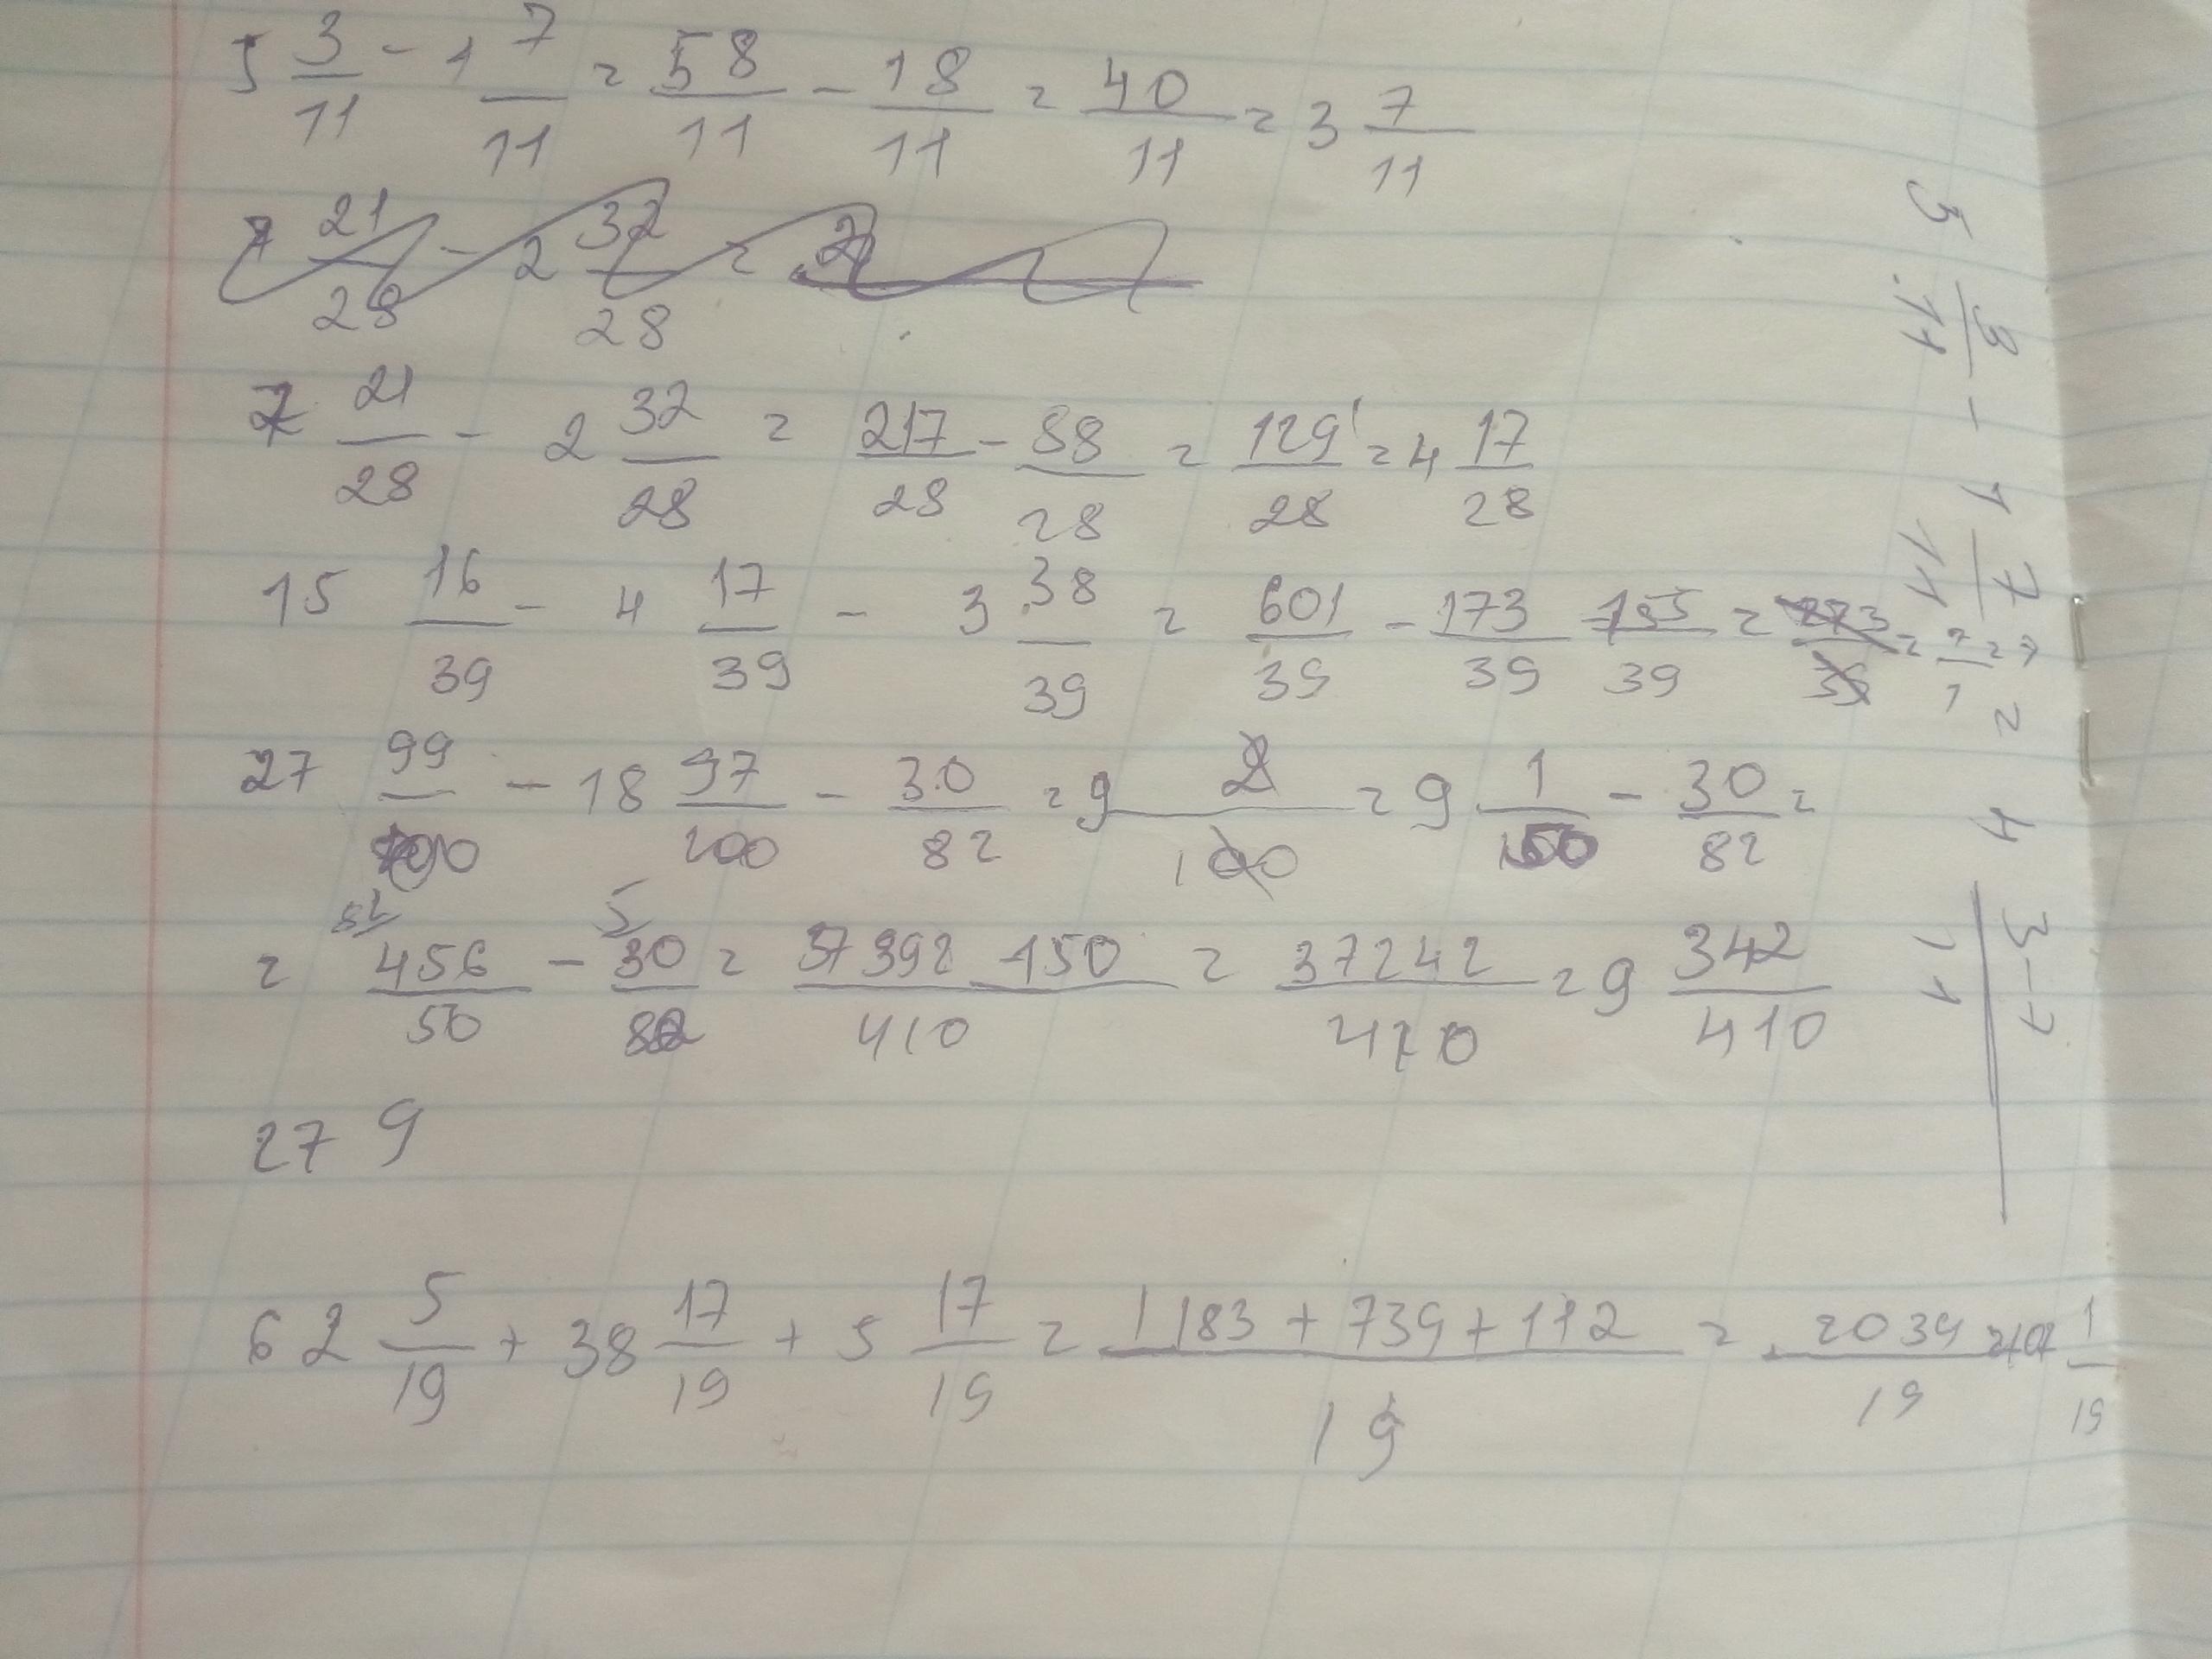 5 3/11 - 1 7/11 = 58/11 - 18/11 = 40/11 = 3 7/11
7 21/28 - 2 32/28 =
7 21/28 - 2 32/28 = 217/28 - 88/28 = 129/28 = 4 17/28
15 16/39 - 4 17/39 - 3 38/39 = 601/39 - 173/39 - 155/39 = 273/39 = 7/1 = 7
27 99/100 - 18 97/100 - 30/82 = 9 2/100 = 9 1/50 - 30/82 =
= 456/50 - 30/82 = 37392 - 150/410 = 37242/410 = 9 342/410
27 9
62 5/19 + 38 17/19 + 5 17/19 = 1183 + 739 + 112/19 = 2034/19 = 107 1/19
5 3/11 - 1 7/11 = 4 3-7/11